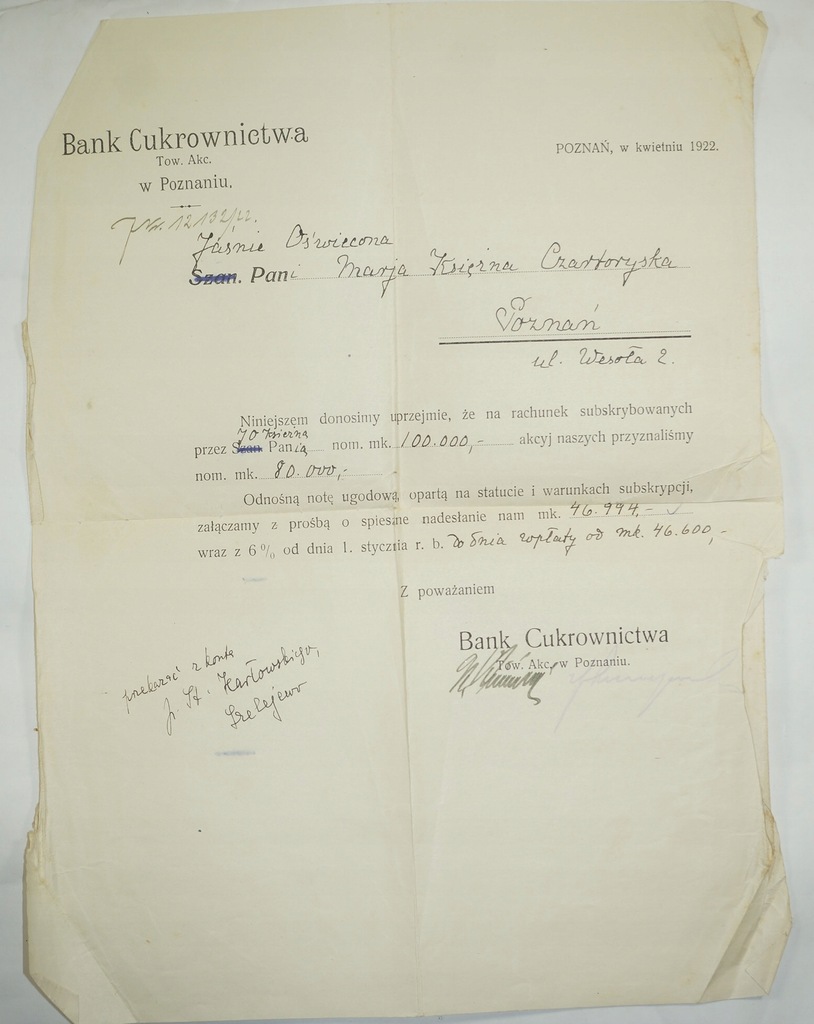 Bank Cukrownictwa
Tow. Akc.
w Poznaniu.
POZNAŃ, w kwietniu 1922.
12132/22.
Jaśnie Oświecona
Szan. Pani Marja Księżna Czartoryska
Poznań
ul. Wesoła 2.
Niniejszem donosimy uprzejmie, że na rachunek subskrybowanych
JO Księżna
przez Szan. Panią nom. mk. 100.000,- akcyj naszych przyznaliśmy
nom. mk. 80.000,-
Odnośną notę ugodową, opartą na statucie i warunkach subskrypcji,
załączamy z prośbą o spieszne nadesłanie nam mk. 46.944,-
wraz z 6% od dnia 1. stycznia r. b. do dnia wpłaty od mk. 46.600,-
Z poważaniem
Bank Cukrownictwa
Tow. Akc. w Poznaniu.
przekazać z konta
p. St. Karłowskiego,
Szelejewo